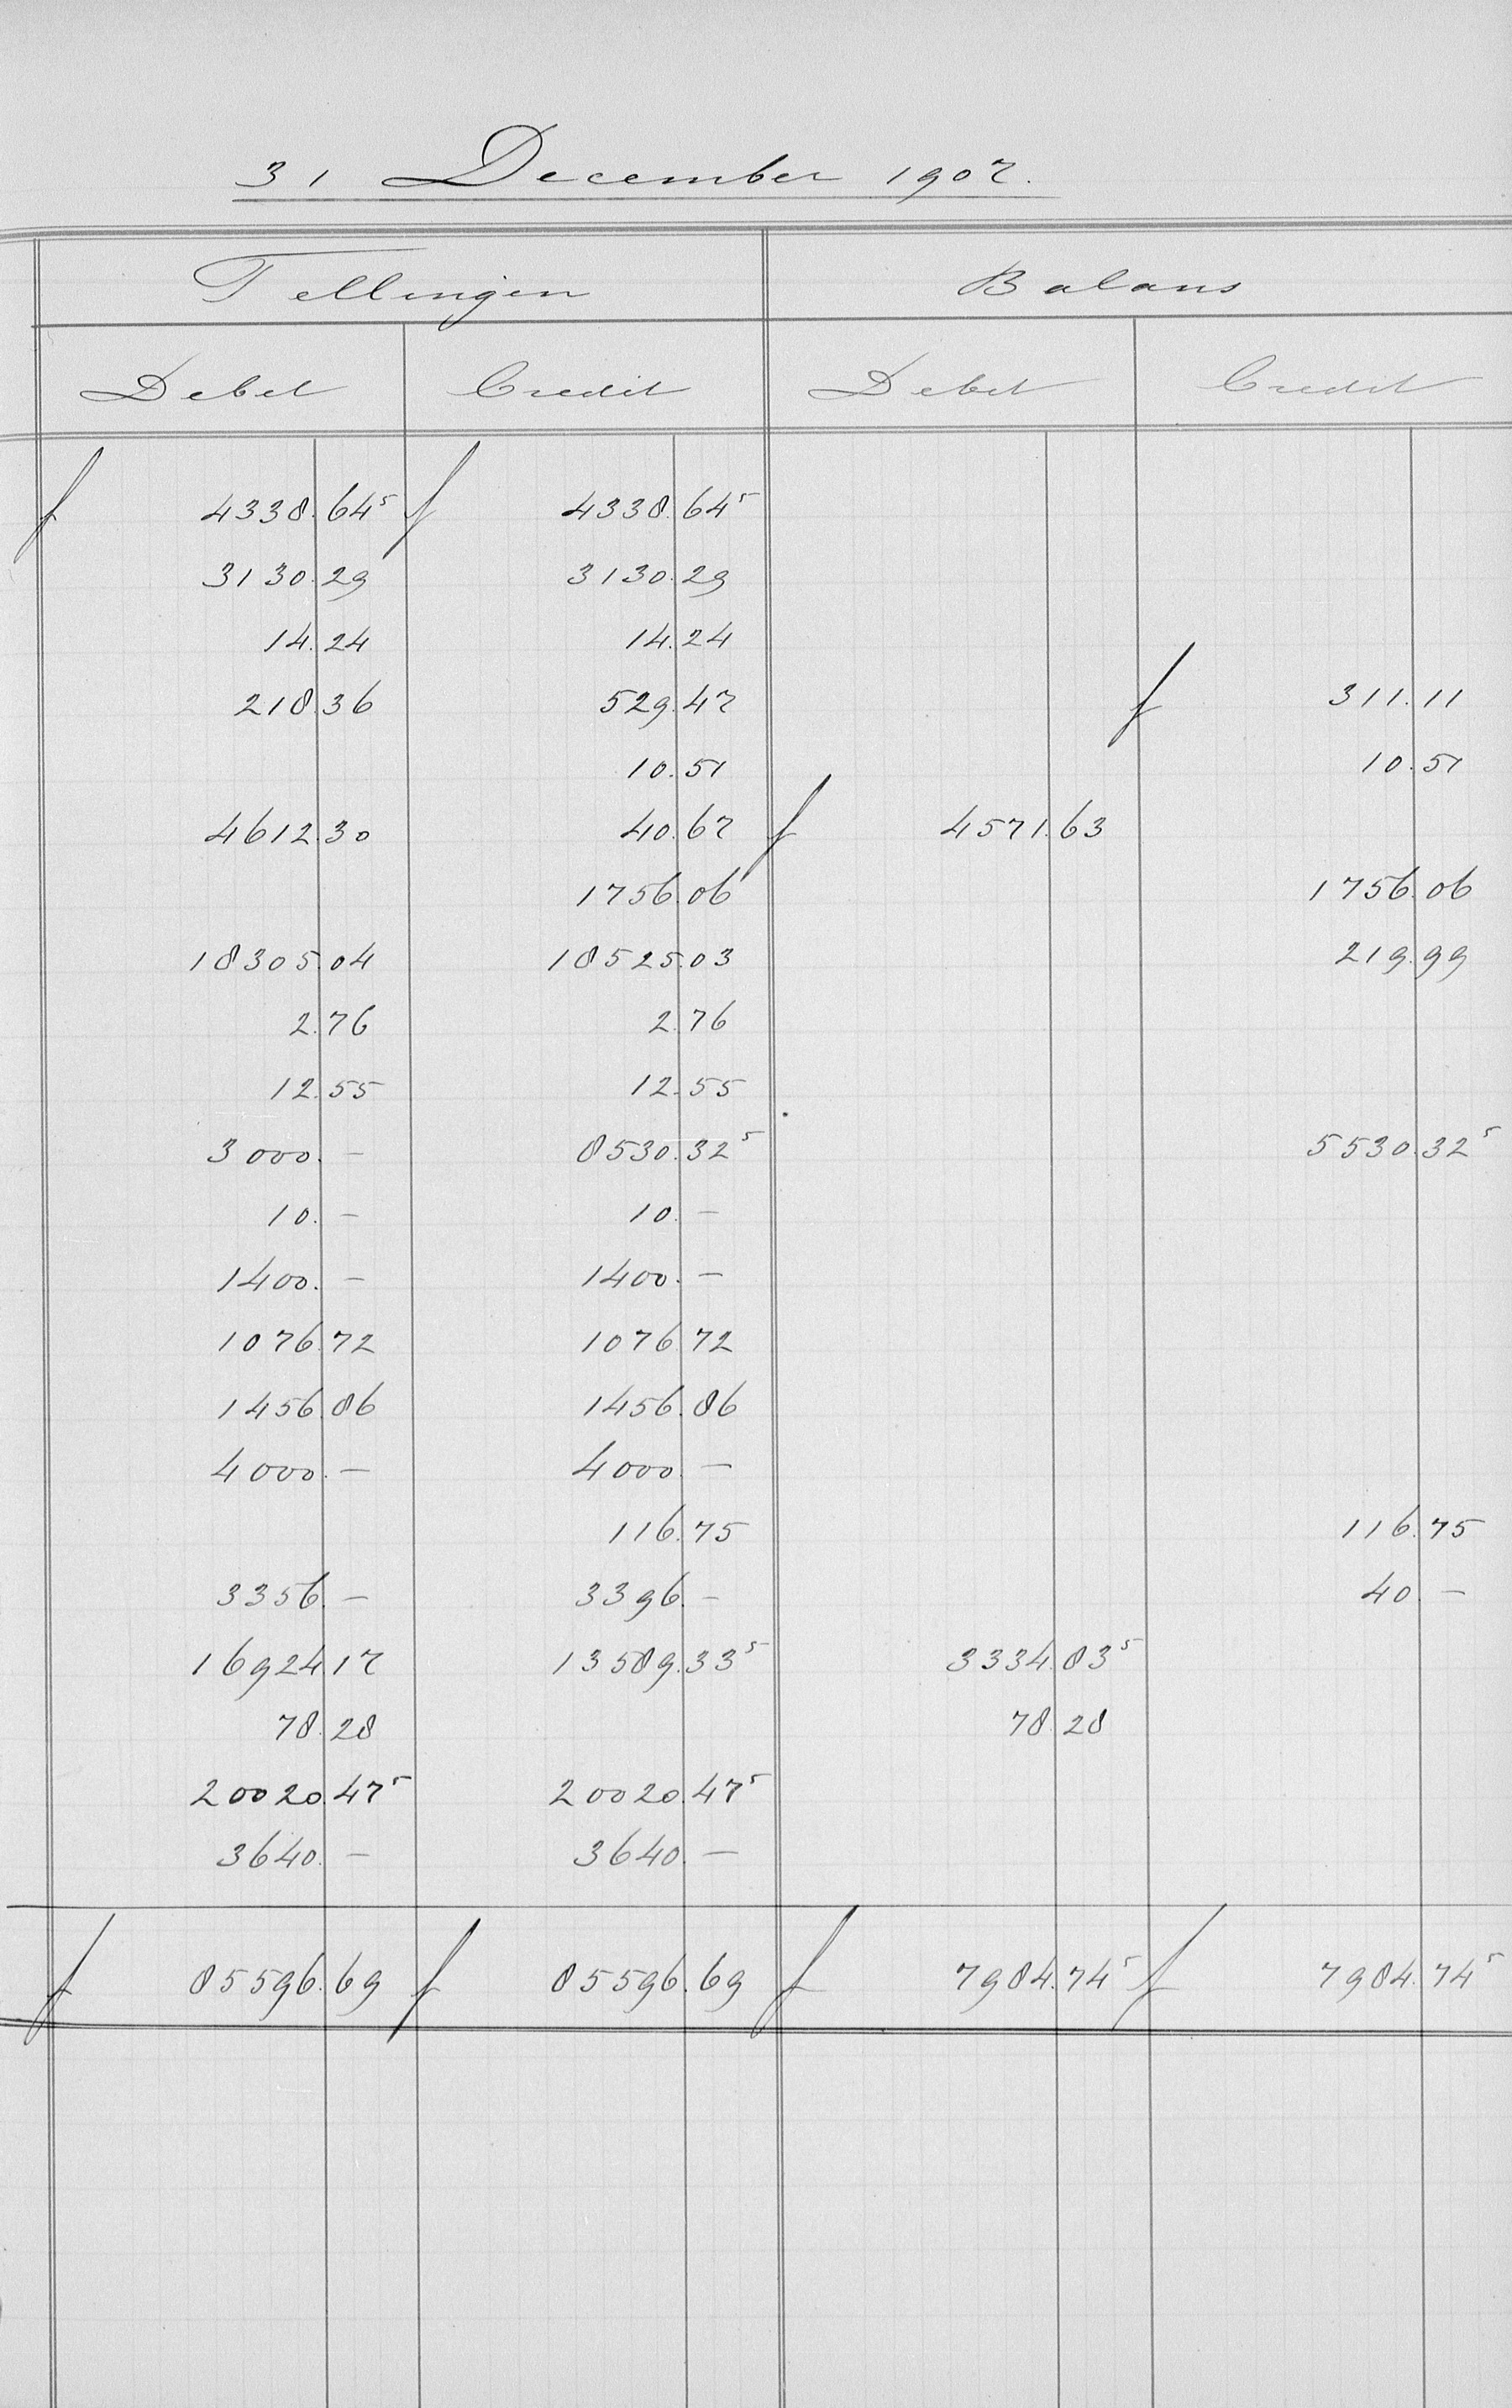 31 December 1907.
Tellingen Balans
Debet Credit Debet Credit
f 4338.64⁵ f 4338.64⁵
3130.29 3130.29
14.24 14.24
218.36 529.47 f 311.11
10.51 10.51
4612.30 40.67 f 4571.63
1756.06 1756.06
18305.04 18525.03 219.99
2.76 2.76
12.55 12.55
3000.— 8530.32⁵ 5530.32⁵
10.— 10.—
1400.— 1400.—
1076.72 1076.72
1456.86 1456.86
4000.— 4000.—
116.75 116.75
3356.— 3396.— 40.—
16924 17 13589.33⁵ 3334.83⁵
78.28 78.28
20020.47⁵ 20020.47⁵
3640.— 3640.—
f 85596.69 f 85596.69 f 7984.74⁵ f 7984.74⁵